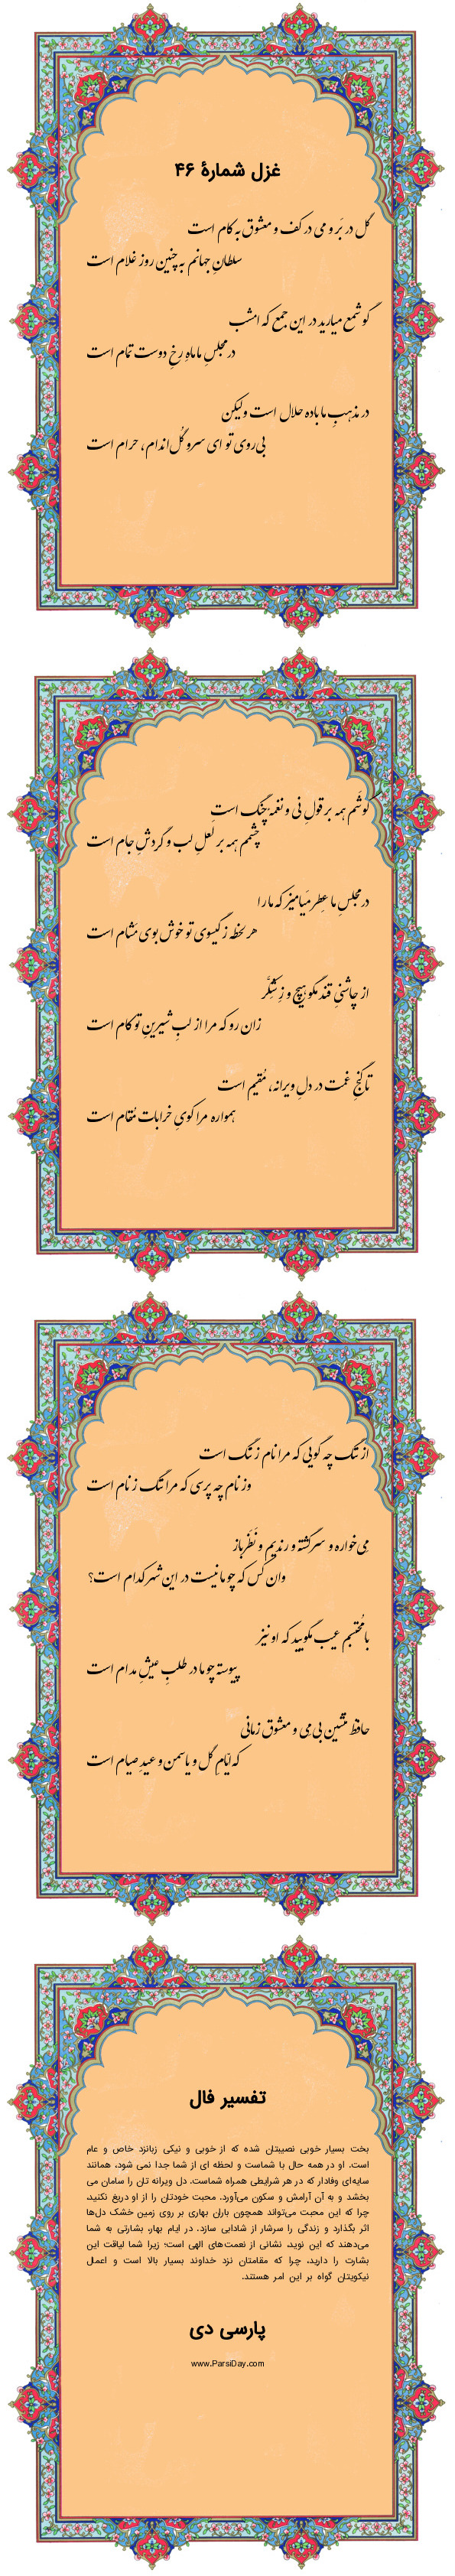 غزل شمارهٔ ۴۶
گل در بَر و می در کف و معشوق به کام است
سلطانِ جهانم به چنین روز غلام است
گو شمع میارید در این جمع که امشب
در مجلسِ ما ماهِ رخِ دوست تمام است
در مذهبِ ما باده حلال است ولیکن
بی‌روی تو ای سروِ گُل‌اندام، حرام است
گوشَم همه بر قولِ نی و نغمهٔ چنگ است
چشمم همه بر لعلِ لب و گردشِ جام است
در مجلسِ ما عِطر مَیامیز که ما را
هر لحظه ز گیسوی تو خوش بوی مَشام است
از چاشنیِ قند مگو هیچ و ز شِکَّر
زان رو که مرا از لبِ شیرینِ تو کام است
تا گنجِ غمت در دلِ ویرانه، مُقیم است
همواره مرا کویِ خرابات مُقام است
از ننگ چه گویی که مرا نام ز ننگ است
وز نام چه پرسی که مرا ننگ ز نام است
مِی‌خواره و سرگشته و رندیم و نَظَرباز
وان کس که چو ما نیست در این شهر کدام است؟
با مُحتسبم عیب مگویید که او نیز
پیوسته چو ما در طلبِ عیشِ مدام است
حافظ منشین بی می و معشوق زمانی
که‌ایّامِ گل و یاسمن و عیدِ صیام است
تفسیر فال
بخت بسیار خوبی نصیبتان شده که از خوبی و نیکی زبانزد خاص و عام
است. او در همه حال با شماست و لحظه ای از شما جدا نمی شود، همانند
سایه‌ای وفادار که در هر شرایطی همراه شماست. دل ویرانه تان را سامان می
بخشد و به آن آرامش و سکون می‌آورد. محبت خودتان را از او دریغ نکنید،
چرا که این محبت می‌تواند همچون باران بهاری بر روی زمین خشک دل‌ها
اثر بگذارد و زندگی را سرشار از شادابی سازد. در ایام بهار، بشارتی به شما
می‌دهند که این نوید، نشانی از نعمت‌های الهی است؛ زیرا شما لیاقت این
بشارت را دارید، چرا که مقامتان نزد خداوند بسیار بالا است و اعمال
نیکویتان گواه بر این امر هستند.
پارسی دی
www.ParsiDay.com